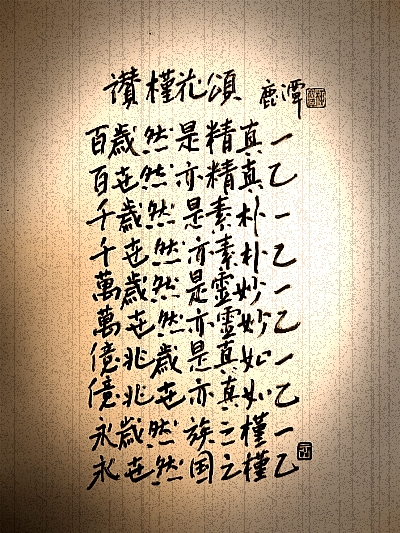 讚槿花頌 鹿潭
百歲然是精真一
百世然亦精真乙
千歲然是素朴一
千世然亦素朴乙
萬歲然是靈妙一
萬世然亦靈妙乙
億兆歲是真如一
億兆世亦真如乙
永歲然族之槿一
永世然国之槿乙